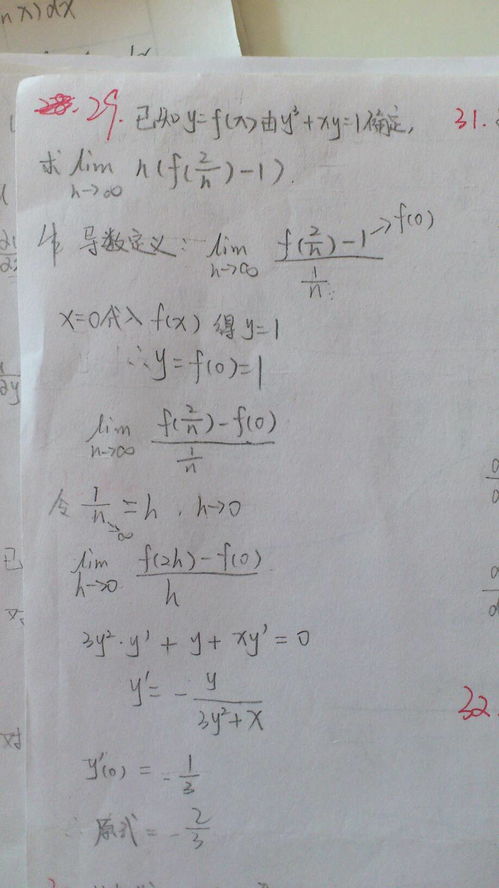 n x) dx
dx
29. 已知 y=f(x) 由 y³+xy=1 确定,
31.
求 lim n→∞ n(f(2/n)-1).
导数定义: lim n→∞ (f(2/n)-1)/(1/n) → f(0)
x=0代入 f(x) 得 y=1
∴ y=f(0)=1
lim n→∞ (f(2/n)-f(0))/(1/n)
令 1/n = h , h→0
→∞
lim h→0 (f(2h)-f(0))/h
3y²·y' + y + xy' = 0
y' = - y/(3y²+x)
32.
y'(0) = - 1/3
原式 = - 2/3